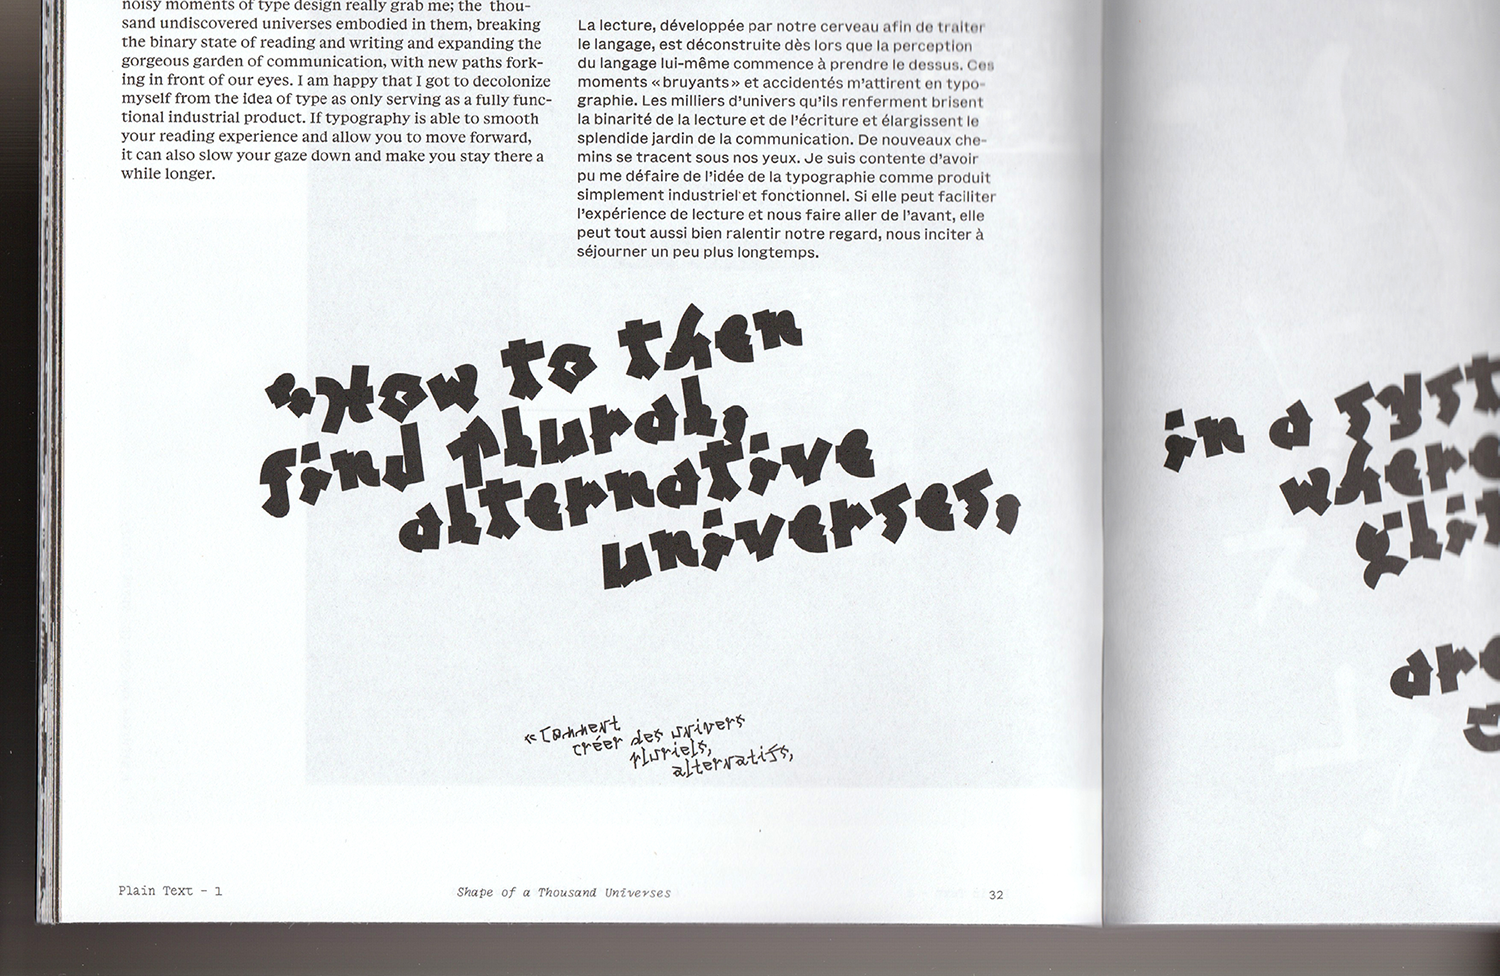 noisy moments of type design really grab me; the thou-
sand undiscovered universes embodied in them, breaking
the binary state of reading and writing and expanding the
gorgeous garden of communication, with new paths fork-
ing in front of our eyes. I am happy that I got to decolonize
myself from the idea of type as only serving as a fully func-
tional industrial product. If typography is able to smooth
your reading experience and allow you to move forward,
it can also slow your gaze down and make you stay there a
while longer.
La lecture, développée par notre cerveau afin de traiter
le langage, est déconstruite dès lors que la perception
du langage lui-même commence à prendre le dessus. Ces
moments « bruyants » et accidentés m'attirent en typo-
graphie. Les milliers d'univers qu'ils renferment brisent
la binarité de la lecture et de l'écriture et élargissent le
splendide jardin de la communication. De nouveaux che-
mins se tracent sous nos yeux. Je suis contente d'avoir
pu me défaire de l'idée de la typographie comme produit
simplement industriel et fonctionnel. Si elle peut faciliter
l'expérience de lecture et nous faire aller de l'avant, elle
peut tout aussi bien ralentir notre regard, nous inciter à
séjourner un peu plus longtemps.
“How to then
find plural,
alternative
universes,
« Comment
créer des univers
pluriels,
alternatifs,
Plain Text – 1
Shape of a Thousand Universes
32
in a syst
where
glit
are